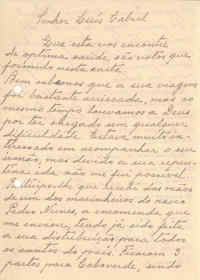 Senhor Luís Cabral
Que esta vos encontre
de optima saude, são votos que
formulo nesta carta.
Bem sabemos que a sua viagem
foi bastante arriscada, mas ao
mesmo tempo louvamos a Deus
por ter chegado sem qualquer
dificuldade. Estava muito in-
teressado em acompanhar o seu
irmão, mas devido a sua repen-
tina ida não me foi possível.
Participo-lhe que recebi das mãos
de um dos marinheiros do navio
Pedro Nunes, a encomenda que
me enviou, tendo já sido feita
a sua distribuição para todos
os pontos do país. Ficaram 3
partes para Caboverde, sendo